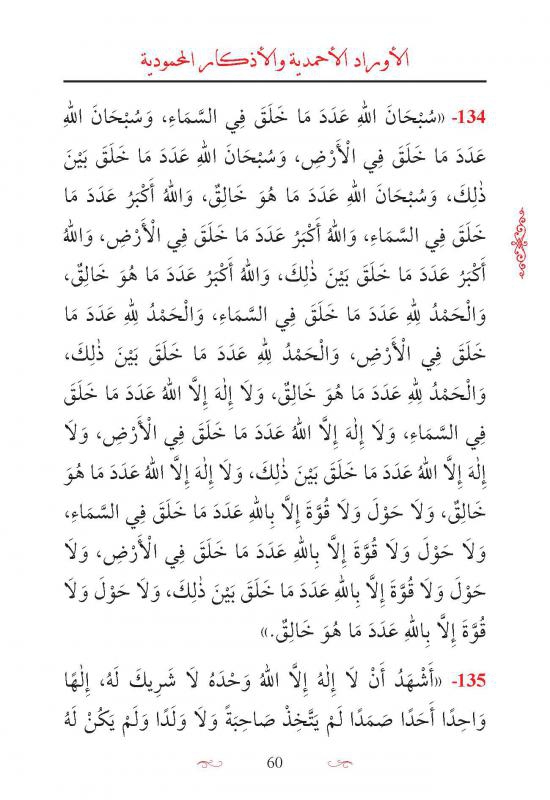 الأوراد الأحمدية والأذكار المحمودية
134- «سُبْحَانَ اللهِ عَدَدَ مَا خَلَقَ فِي السَّمَاءِ، وَسُبْحَانَ اللهِ
عَدَدَ مَا خَلَقَ فِي الْأَرْضِ، وَسُبْحَانَ اللهِ عَدَدَ مَا خَلَقَ بَيْنَ
ذٰلِكَ، وَسُبْحَانَ اللهِ عَدَدَ مَا هُوَ خَالِقٌ، وَاللهُ أَكْبَرُ عَدَدَ مَا
خَلَقَ فِي السَّمَاءِ، وَاللهُ أَكْبَرُ عَدَدَ مَا خَلَقَ فِي الْأَرْضِ، وَاللهُ
أَكْبَرُ عَدَدَ مَا خَلَقَ بَيْنَ ذٰلِكَ، وَاللهُ أَكْبَرُ عَدَدَ مَا هُوَ خَالِقٌ،
وَالْحَمْدُ لِلهِ عَدَدَ مَا خَلَقَ فِي السَّمَاءِ، وَالْحَمْدُ لِلهِ عَدَدَ مَا
خَلَقَ فِي الْأَرْضِ، وَالْحَمْدُ لِلهِ عَدَدَ مَا خَلَقَ بَيْنَ ذٰلِكَ،
وَالْحَمْدُ لِلهِ عَدَدَ مَا هُوَ خَالِقٌ، وَلَا إِلٰهَ إِلَّا اللهُ عَدَدَ مَا خَلَقَ
فِي السَّمَاءِ، وَلَا إِلٰهَ إِلَّا اللهُ عَدَدَ مَا خَلَقَ فِي الْأَرْضِ، وَلَا
إِلٰهَ إِلَّا اللهُ عَدَدَ مَا خَلَقَ بَيْنَ ذٰلِكَ، وَلَا إِلٰهَ إِلَّا اللهُ عَدَدَ مَا هُوَ
خَالِقٌ، وَلَا حَوْلَ وَلَا قُوَّةَ إِلَّا بِاللهِ عَدَدَ مَا خَلَقَ فِي السَّمَاءِ،
وَلَا حَوْلَ وَلَا قُوَّةَ إِلَّا بِاللهِ عَدَدَ مَا خَلَقَ فِي الْأَرْضِ، وَلَا
حَوْلَ وَلَا قُوَّةَ إِلَّا بِاللهِ عَدَدَ مَا خَلَقَ بَيْنَ ذٰلِكَ، وَلَا حَوْلَ وَلَا
قُوَّةَ إِلَّا بِاللهِ عَدَدَ مَا هُوَ خَالِقٌ.»
135- «أَشْهَدُ أَنْ لَا إِلٰهَ إِلَّا اللهُ وَحْدَهُ لَا شَرِيكَ لَهُ، إِلٰهًا
وَاحِدًا أَحَدًا صَمَدًا لَمْ يَتَّخِذْ صَاحِبَةً وَلَا وَلَدًا وَلَمْ يَكُنْ لَهُ
60